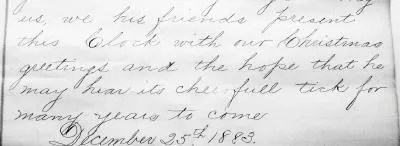 us, we his friends present
this Clock with our Christmas
greetings and the hope that he
may hear its cheerfull tick for
many years to come
December 25th. 1883.